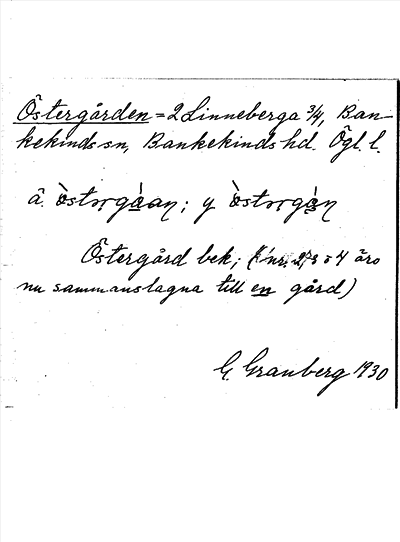 Östergården = 2 Linneberga 3/4, Ban-
kekinds sn, Bankekinds hd. Ögl. l.
å. òstərgáan; y òstərgán
Östergård bek; (nr. 2, 3 o 4 äro
nu sammanslagna till en gård)
G. Granberg 1930